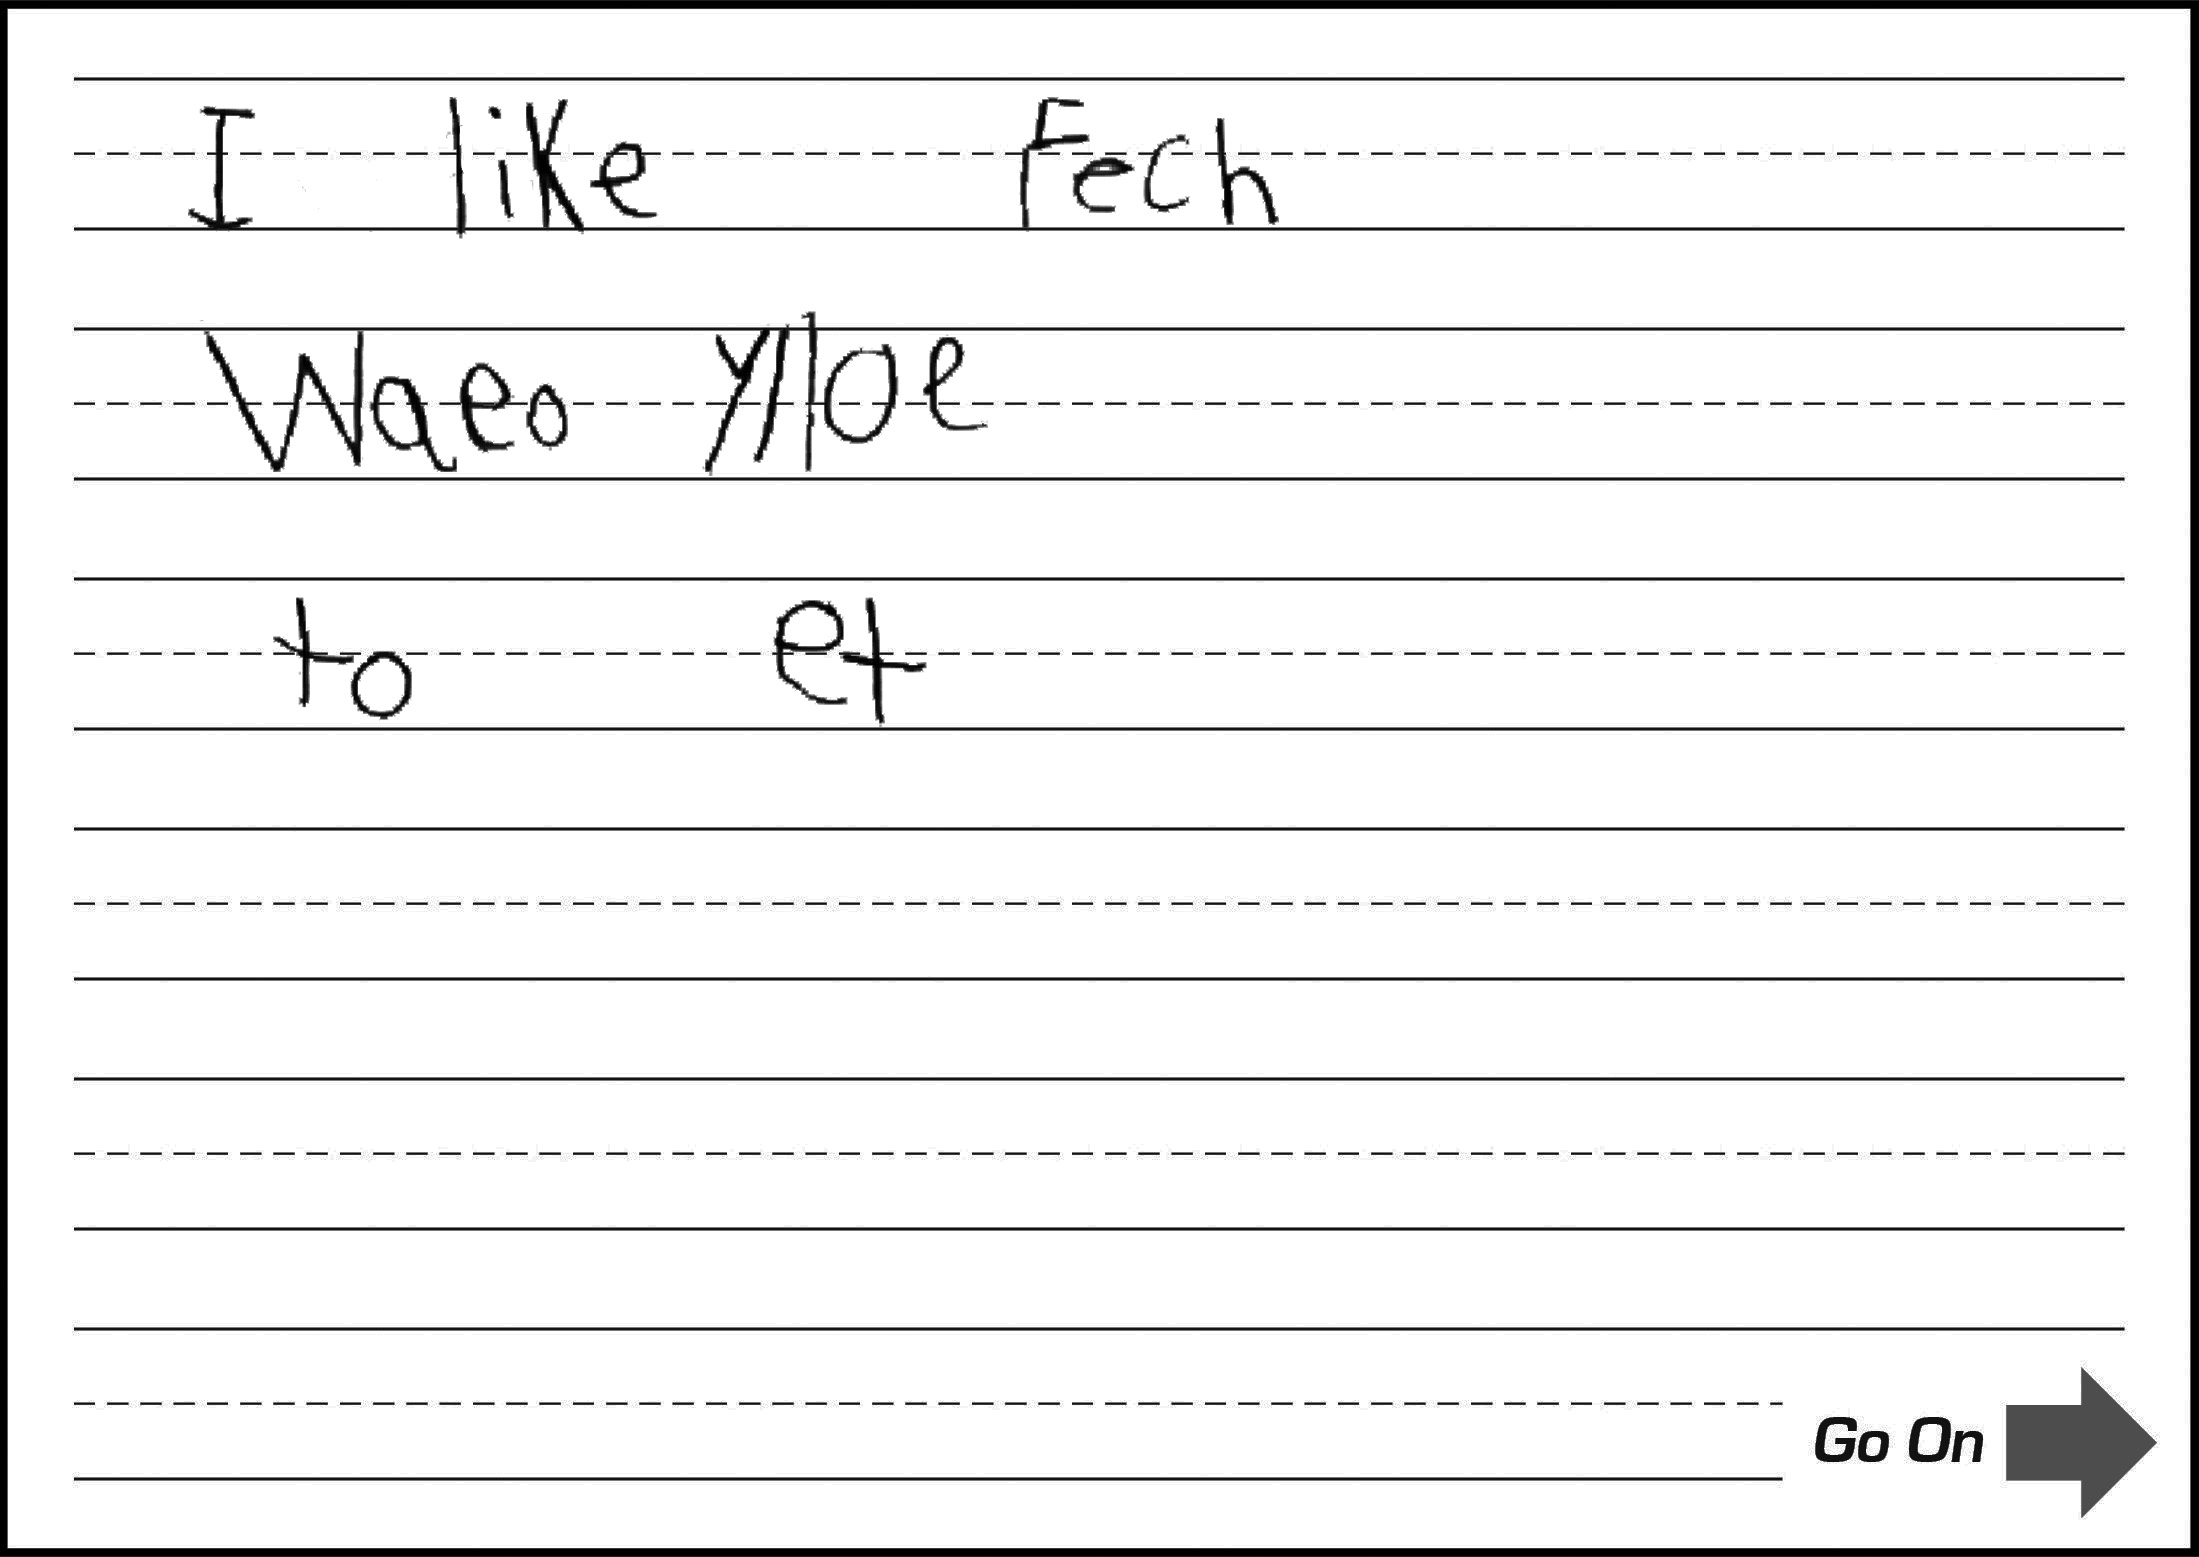 I like Fech
Waeo ylloe
to et
Go On